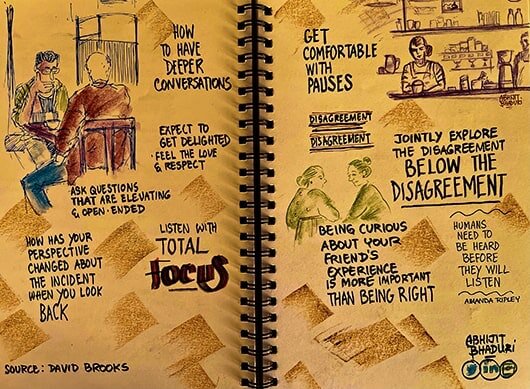 HOW
TO HAVE
DEEPER
CONVERSATIONS
EXPECT TO
GET DELIGHTED
• FEEL THE LOVE
& RESPECT
ASK QUESTIONS
THAT ARE ELEVATING
& OPEN-ENDED
HOW HAS YOUR
PERSPECTIVE
CHANGED ABOUT
THE INCIDENT
WHEN YOU LOOK
BACK
LISTEN WITH
TOTAL
FOCUS
SOURCE: DAVID BROOKS
GET
COMFORTABLE
WITH
PAUSES
ABHIJIT
BHADURI
DISAGREEMENT
DISAGREEMENT
JOINTLY EXPLORE
THE DISAGREEMENT
BELOW THE
DISAGREEMENT
BEING CURIOUS
ABOUT YOUR
FRIEND'S
EXPERIENCE
IS MORE IMPORTANT
THAN BEING RIGHT
HUMANS
NEED TO
BE HEARD
BEFORE
THEY WILL
LISTEN
AMANDA RIPLEY
ABHIJIT
BHADURI
in